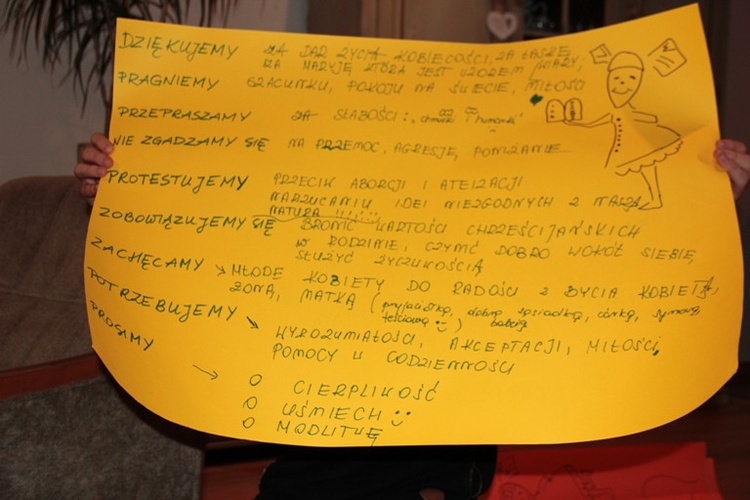 DZIĘKUJEMY ZA DAR ŻYCIA, KOBIECOŚCI, ZA ŁASKĘ
ZA MARYJĘ KTÓRA JEST WZOREM WIARY,
PRAGNIEMY SZACUNKU, POKOJU NA ŚWIECIE, MIŁOŚCI
PRZEPRASZAMY ZA SŁABOŚCI: „chmurki i humorki”
NIE ZGADZAMY SIĘ NA PRZEMOC, AGRESJĘ, PONIŻANIE
PROTESTUJEMY PRZECIW ABORCJI I ATEIZACJI
NARZUCANIU IDEI NIEZGODNYCH Z NASZĄ
NATURĄ !!!!!!
ZOBOWIĄZUJEMY SIĘ BRONIĆ WARTOŚCI CHRZEŚCIJAŃSKICH
W RODZINIE, CZYNIĆ DOBRO WOKÓŁ SIEBIE,
SŁUŻYĆ ŻYCZLIWOŚCIĄ
ZACHĘCAMY → MŁODE KOBIETY DO RADOŚCI Z BYCIA KOBIETĄ,
ŻONĄ, MATKĄ (przyjaciółką, dobrą sąsiadką, córką, synową,
teściową :) babcią
POTRZEBUJEMY → WYROZUMIAŁOŚCI, AKCEPTACJI, MIŁOŚCI,
POMOCY W CODZIENNOŚCI
PROSIMY → O CIERPLIWOŚĆ
O UŚMIECH :)
O MODLITWĘ